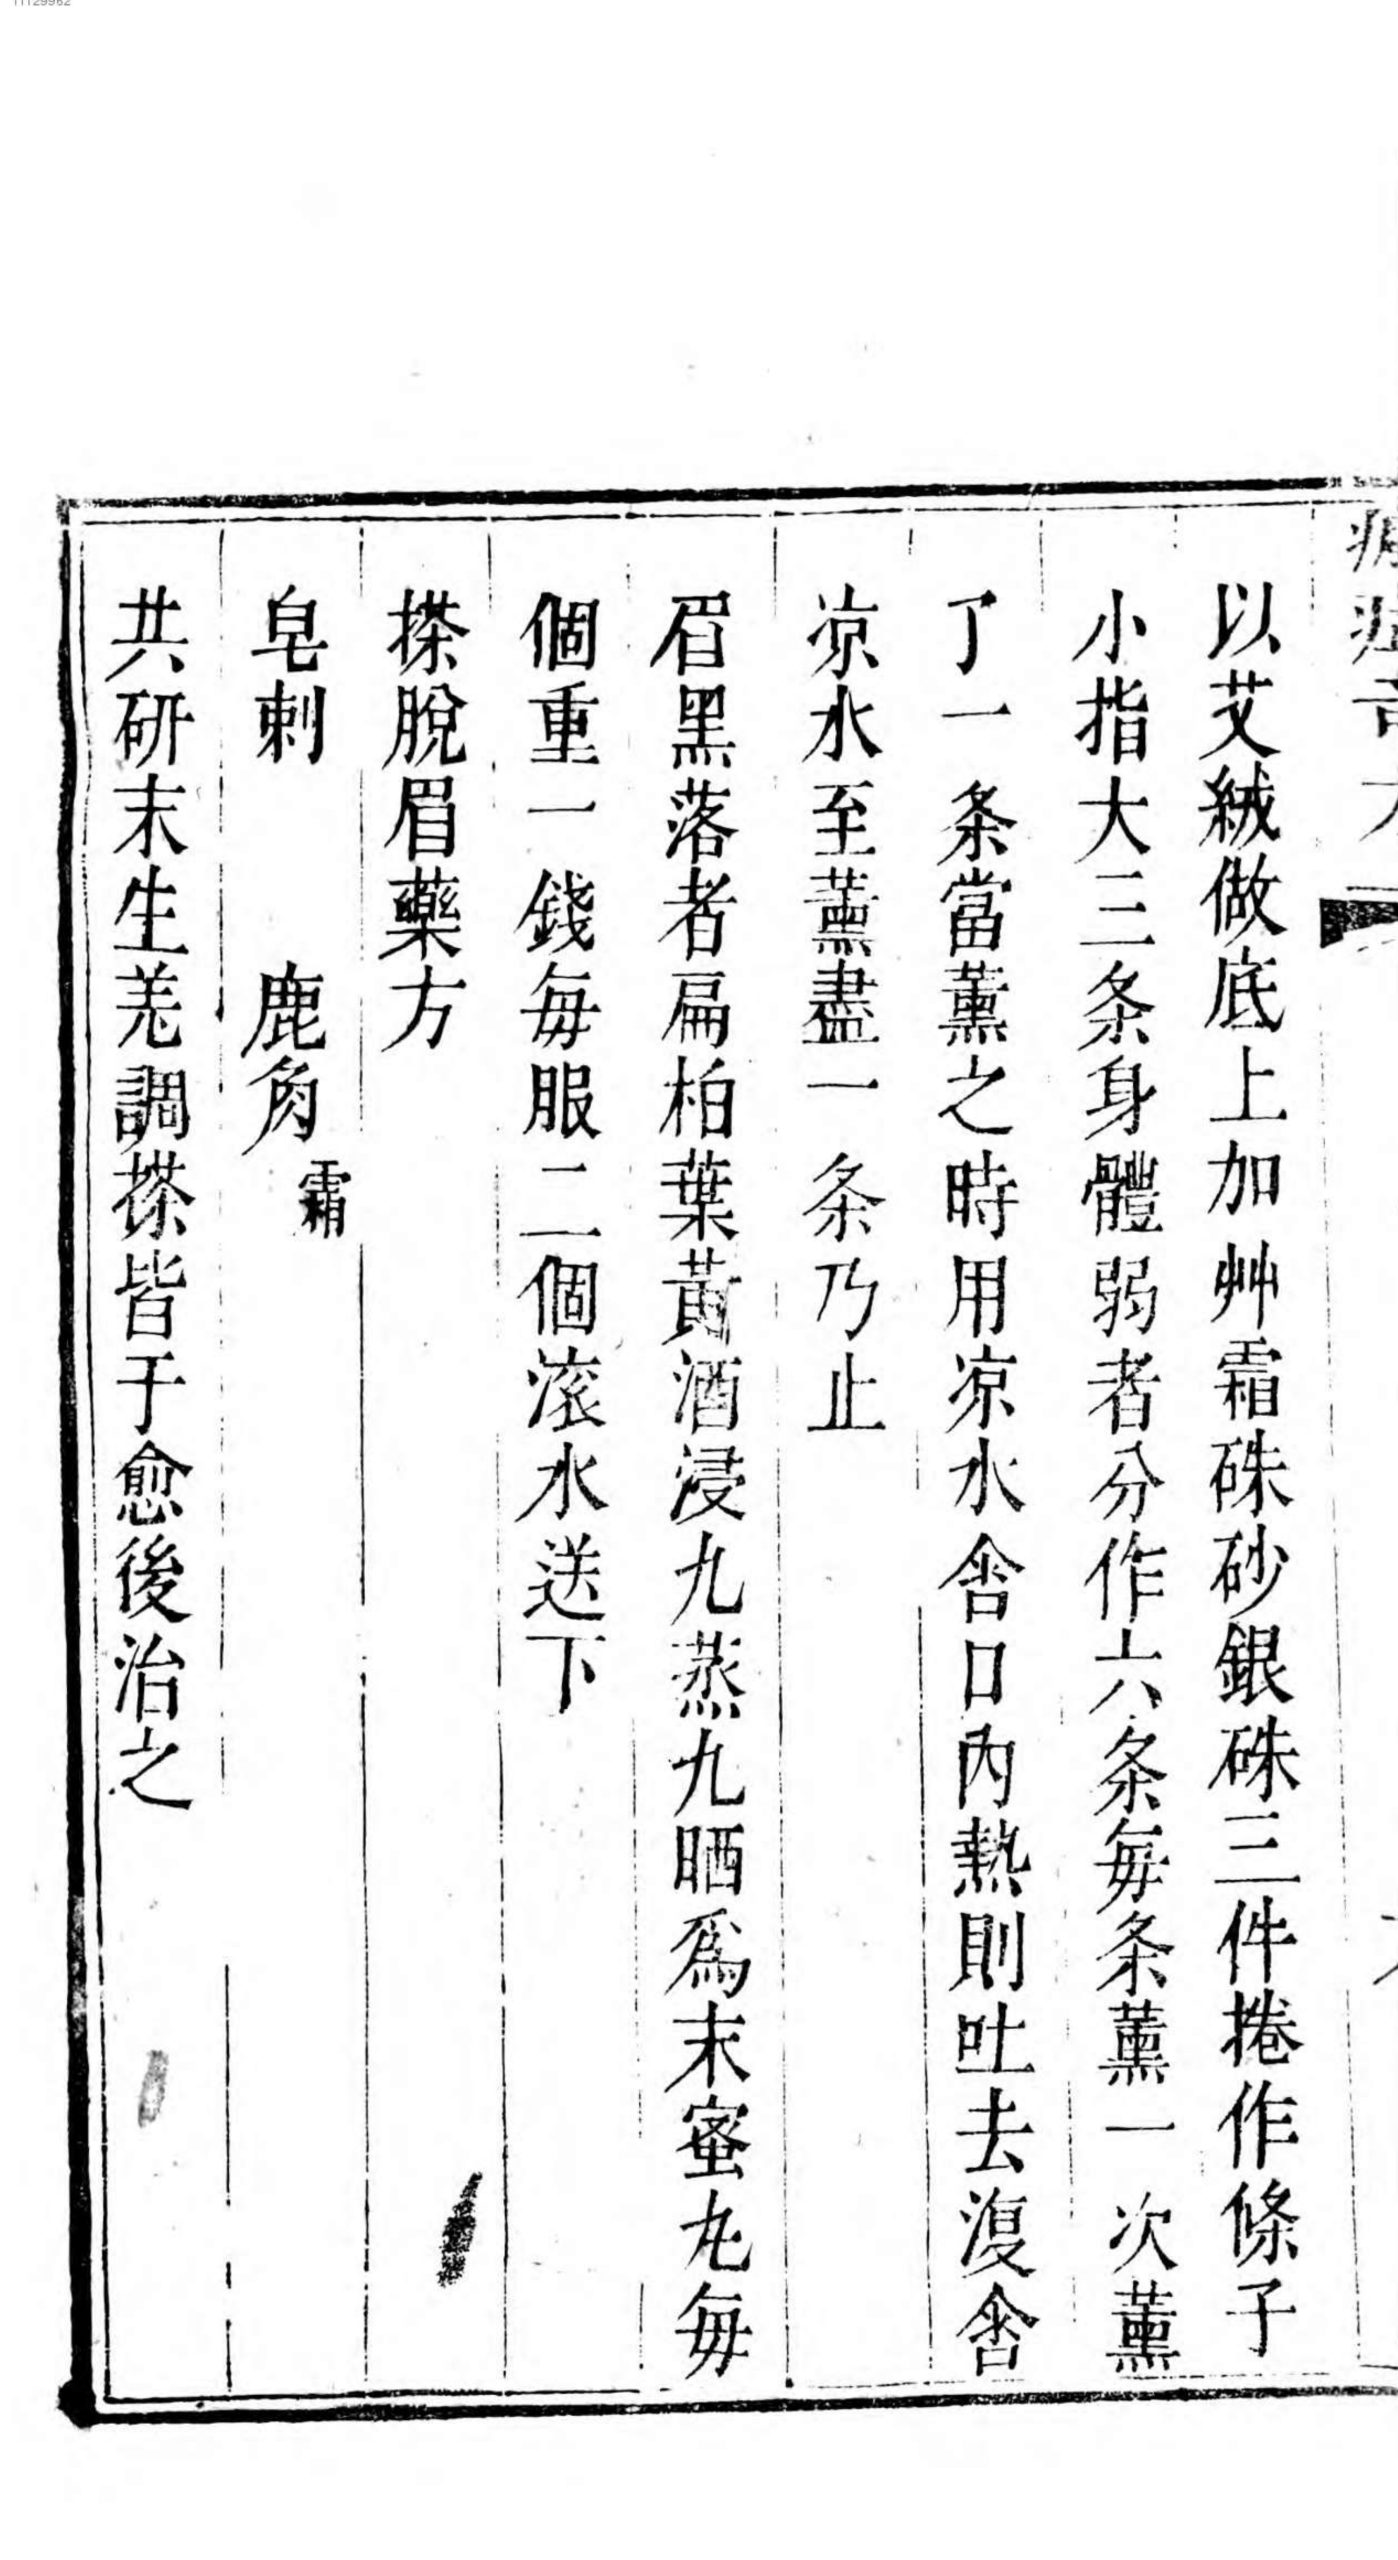 以艾絨做底上加艸霜硃砂銀硃三件捲作條子
小指大三条身體弱者分作六条毎条薰一次薰
了一条當薰之時用凉水含口內熱則吐去復含
凉水至薰盡一条乃止
眉黑落者扁柏葉黃酒浸九蒸九晒爲末蜜丸毎
個重一錢每服二個滚水送下
搽脫眉藥方
皂刺　鹿角霜
共研末生羗調搽皆于愈後治之